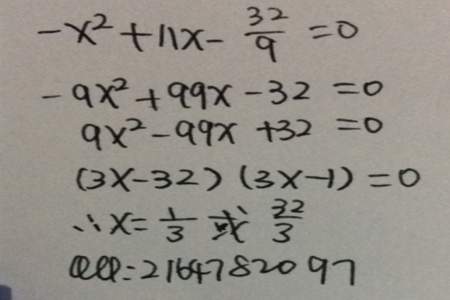 -x² + 11x - 32/9 = 0
-9x² + 99x - 32 = 0
9x² - 99x + 32 = 0
(3x-32)(3x-1) = 0
∴x = 1/3 或 32/3
QQ:2164782097